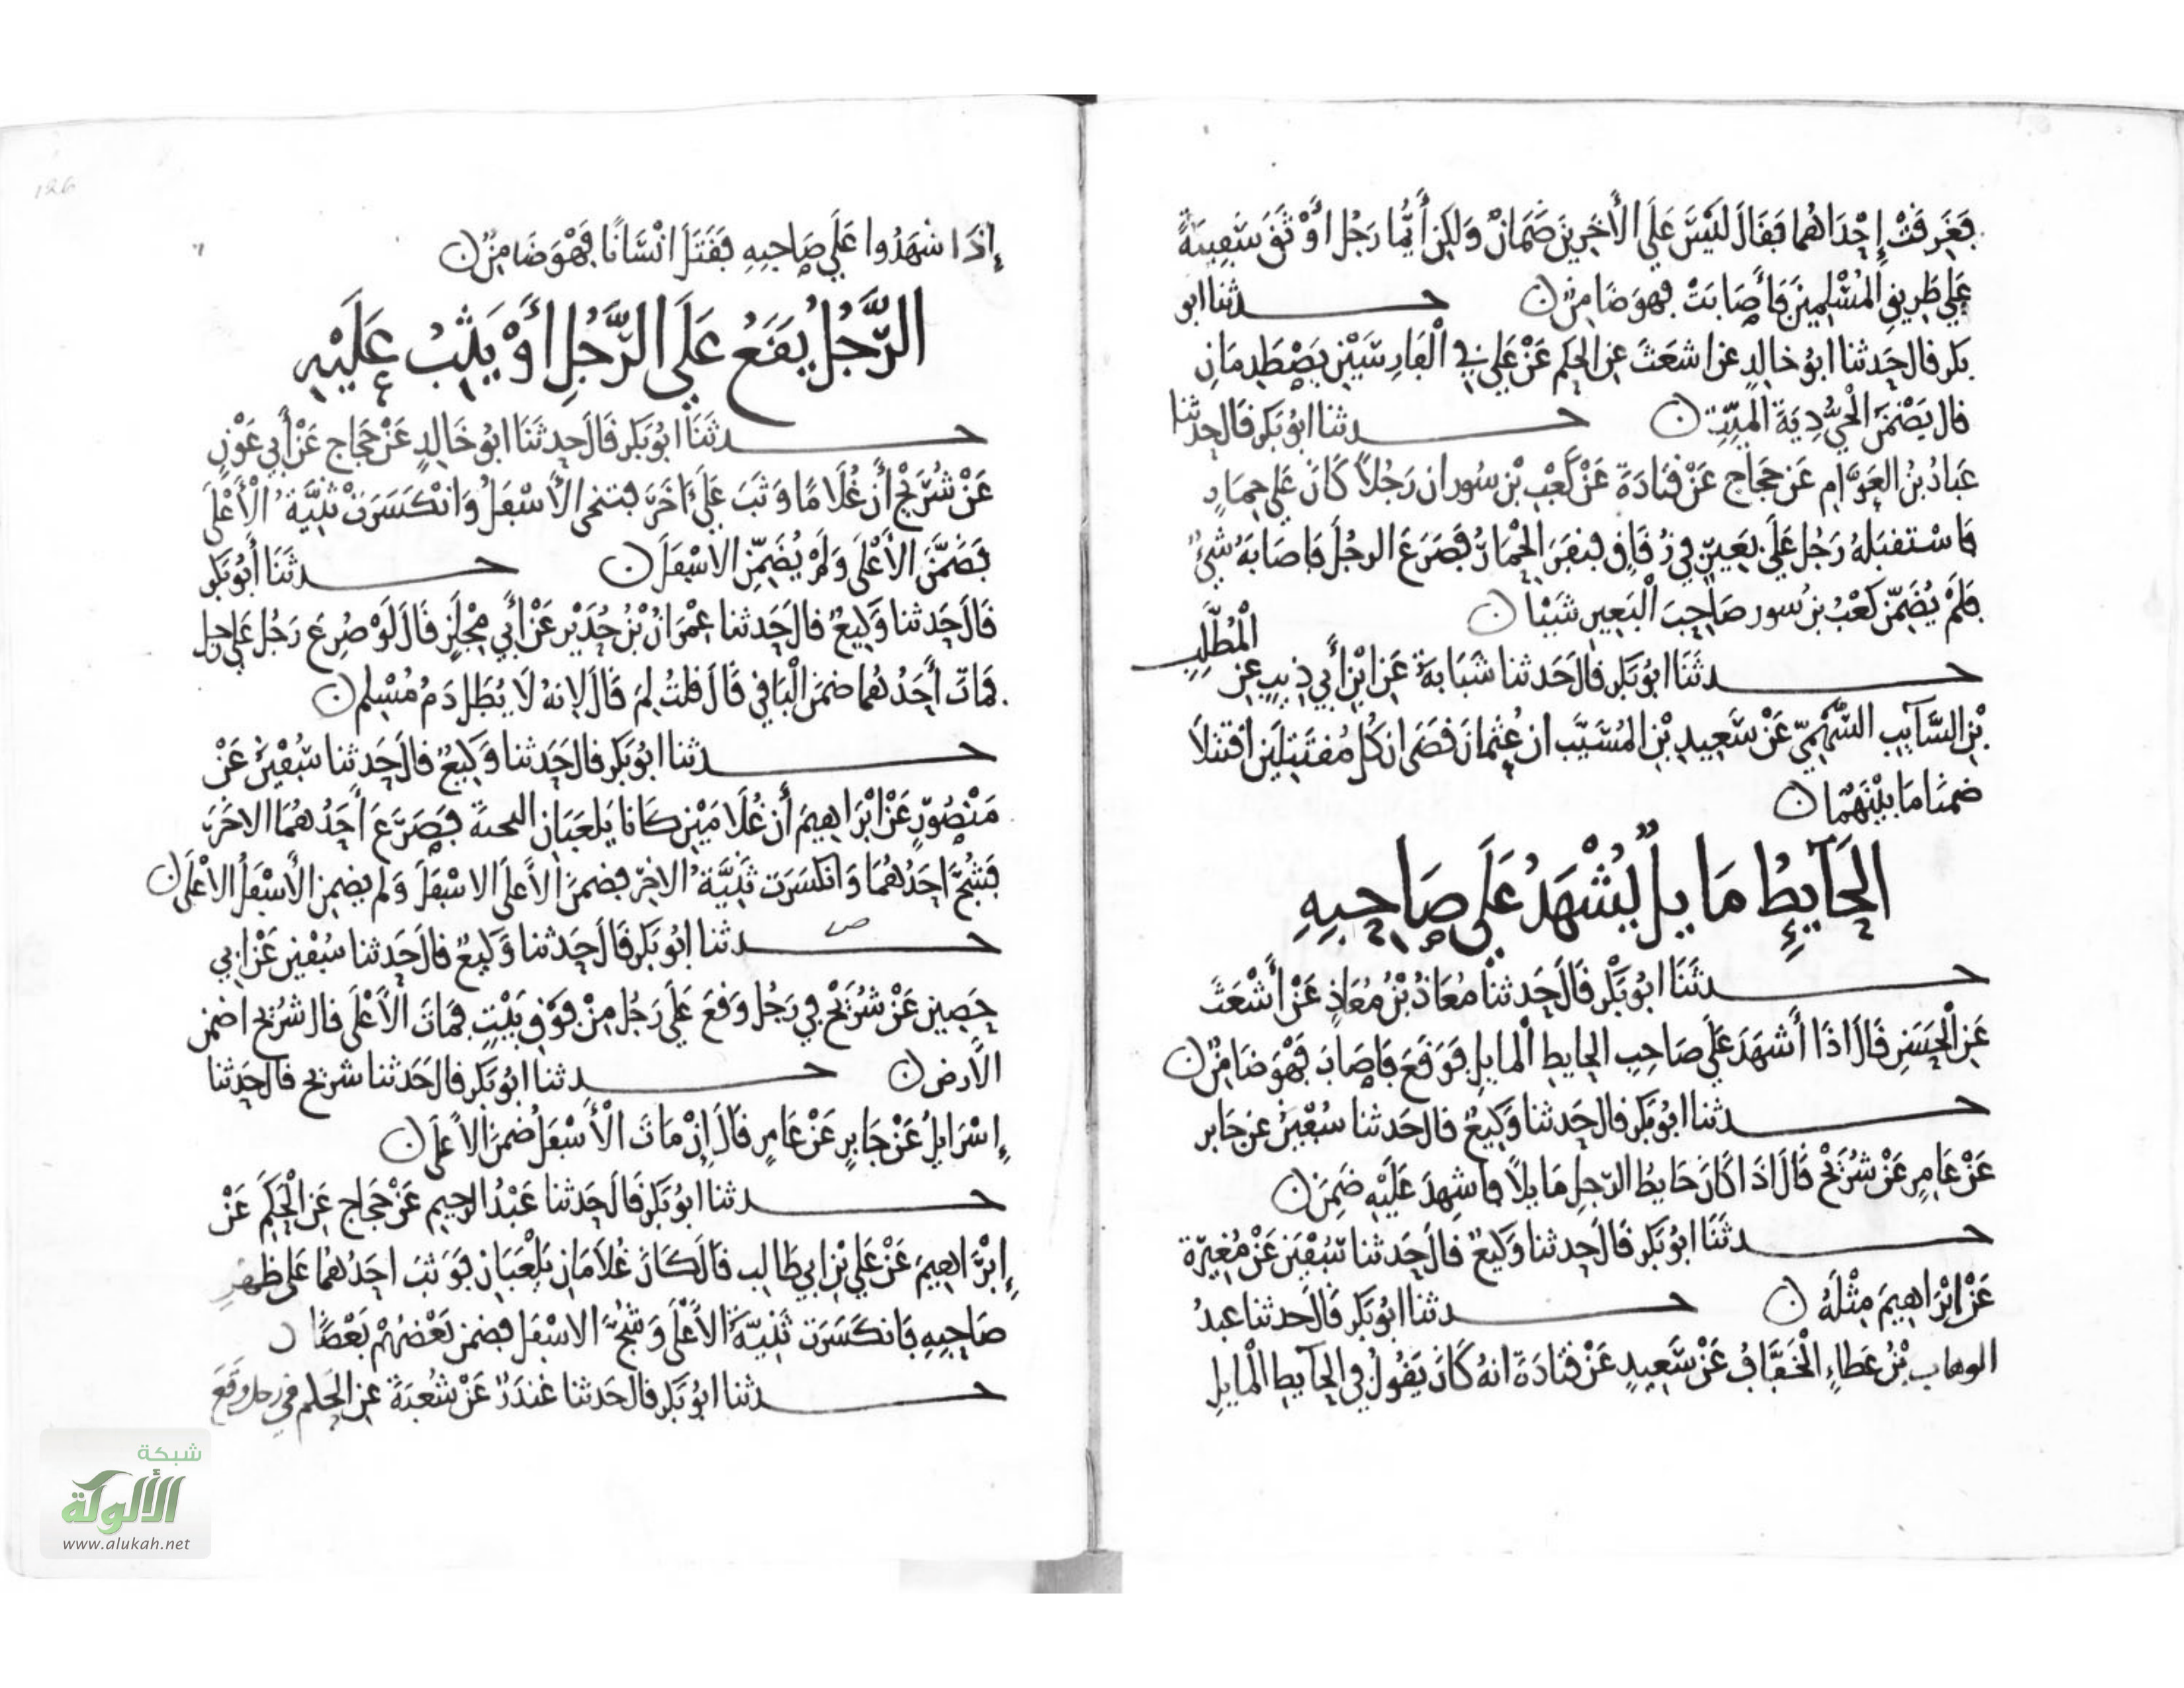 فَغَرِقَتْ إِحْدَاهُما فَقَالَ لَيْسَ عَلَى الأَخَرِينَ ضَمَانٌ وَلَكِنْ أَيُّمَا رَجُلٍ أَوْثَقَ سَفِينَةً
عَلَى طَرِيقِ الْمُسْلِمِينَ فَأَصَابَتْ فَهوَ ضَامِنٌ ۞ حدثنا ابو
بكر قال حَدثنا ابُو خالِدٍ عن اشعَثَ عن الحكم عَنْ عَلي في الْفَارِسَيْنِ يَصْطَدِمَانِ
قال يَضْمَنُ الْحَيُّ دِيَةَ المَيِّتِ ۞ حدثنا ابُو بَكر قَال حدثنا
عَبادُ بنُ العَوَّامِ عَن حَجاجٍ عَنْ قتَادَةَ عَنْ كَعْبِ بْنِ سُور ان رَجُلاً كَانَ عَلى حِمَارٍ
فَاسْتَقبَلهُ رَجُل عَلَى بَعِيرٍ في زُقَاقٍ فنفَرَ الْحِمَارُ فَصَرَعَ الرجُلَ فَاصَابَهُ شَيْءٌ
فلَمْ يُضَمِّن كَعْبُ بنُ سور صَاحِبَ الْبَعِيرِ شَيْئا ۞
حدثَنَا ابُو بَكر قالَ حَدثنا شَبَابَةُ عَن ابْنِ أَبي ذيبٍ عن الْمُطَّلِبِ
بْنِ السَّآيبِ السَّهْمِيّ عَنْ سَعِيدِ بْنِ المُسَيَّب ان عُثمانَ قضَى ان كُلَّ مُقتَتِلَيْنِ اقتتَلاَ
ضمنا مَا بيْنَهُمَا ۞
الحَآيِطُ مَايلُ يُشْهَدُ عَلَى صَاحِبِهِ
حدثَنَا ابُو بَكْر قَالَ حَدثنا مُعَاذُ بْنُ مُعَاذٍ عَنْ أَشْعَثَ
عَن الْحَسَنِ قَالَ اذَا أَشْهَدَ عَلَى صَاحِبِ الحايطِ المايلِ فوَقَعَ فَاصَابَ فَهْوَ ضَامِنٌ ۞
حدثنا ابُو بَكر قالَ حَدثنا وَكِيعٌ قالَ حَدثنا سُفْيَنُ عن جَابر
عَنْ عَامِرٍ عَنْ شُرَيْحٍ قَالَ اذَا كَانَ حَايطُ الرّجلِ مَايلاً فاشهِدَ عَلَيْهِ ضَمِنَ ۞
حدثَنَا ابُو بَكر قَالَ حَدثنا وَكيعٌ قَالَ حَدثنا سُفْيَن عَنْ مُغِيرَة
عَنْ ابْرَاهِيمَ مِثْلَهُ ۞ حدثنا ابُو بَكر قَالَ حَدثنا عبدُ
الوهاب بْنُ عَطاءٍ الْخَفَّافُ عَنْ سَعِيدٍ عَنْ قتَادَةَ انهُ كَانَ يَقُولُ في الحَآيطِ الْمَايلِ
126
إِذَا شَهِدُوا عَلَى صَاحِبِهِ فَقَتَلَ انْسَانًا فَهْوَ ضَامِنٌ ۞
الرَّجُلُ يَقَعُ عَلَى الرَّجُلِ أَوْ يَثِبُ عَلَيْهِ
حدثَنَا ابُو بَكر قَالَ حَدثنَا ابُو خَالِدٍ عَنْ حَجَاجٍ عَنْ أَبي عَوْنٍ
عَنْ شُرَيْحٍ أَن غُلاَمًا وَثَبَ عَلَى آخَرَ فتنحى الأَسْفَلُ وَانْكَسَرَتْ ثَنِيَّةُ الْأَعْلَى
فَضَمَّنَ الأَعْلَى وَلَمْ يُضَمِّنِ الاسْفَلَ ۞ حدثَنَا أَبُو بَكر
قَالَ حَدثنا وَكِيعٌ قالَ حَدثنا عِمْرَانُ بْنُ حُدَيْرٍ عَنْ أَبي مِجْلَزٍ قَالَ لَوْ صُرِعَ رَجُل عَلَى رجل
فمَاتَ أَحَدُهُما ضمنَ الْبَاقي قَالَ قلتُ لِمَ قَالَ لانهُ لَا يُطَلُّ دَمُ مُسْلِم ۞
حدثنا ابُو بَكر قالَ حَدثنا وَكِيعٌ قالَ حَدثنا سُفْيَنُ عَنْ
مَنْصُورٍ عَنْ ابْرَاهِيمَ أَنَ غُلاَمَيْنِ كَانَا يَلعَبَانِ فَصَرَعَ أَحَدُهُمَا الاخَرَ
فَشُجَّ احَدُهُمَا وَانكسَرَت ثَنِيَّةُ الاخَرِ فضمنَ الأَعلَى الاسْفَلَ وَلم يضمنِ الأَسْفَلُ الاعْلَى ۞
حدثنا ابُو بَكر قَالَ حَدثنا وَكيعٌ قالَ حَدثنا سُفْيَن عَنْ ابي
حَصِينٍ عَنْ شُرَيْحٍ في رَجُلٍ وَقعَ عَلَى رَجُلٍ مِنْ فَوْقِ بَيْتٍ فمَاتَ الأَعْلَى قال شُرَيْح اضمن
الأرض ۞ حدثنا ابُو بَكر قالَ حَدثنا شريح قالَ حَدثنا
إِسْرَايلُ عَنْ جَابِرٍ عَنْ عَامِرٍ قَالَ إِنْ مَاتَ الْأَسْفَلُ ضمنَ الأَعلَى ۞
حدثنا ابُو بَكر قَالَ حَدثنا عَبْدُ الرحِيمِ عَنْ حَجَاجٍ عَنِ الْحَكَمِ عَنْ
إِبْرَاهِيمَ عَنْ عَلي بْنِ ابي طَالِب قَالَ كَانَ غُلاَمَانِ يَلْعَبَانِ فَوَثبَ احَدُهُمَا عَلى ظهرِ
صَاحِبِهِ فَانكَسَرَت ثَنِيَّةُ الأَعْلَى وَشُجَّ الاسْفَلُ فضمنَ بَعْضَهُمْ بَعْضًا ۞
حدثنا ابُو بَكر قالَ حَدثنا غُندَرٌ عَنْ شُعبَةَ عن الحَكم في رجل وقَعَ
شبكة
الألوكة
www.alukah.net